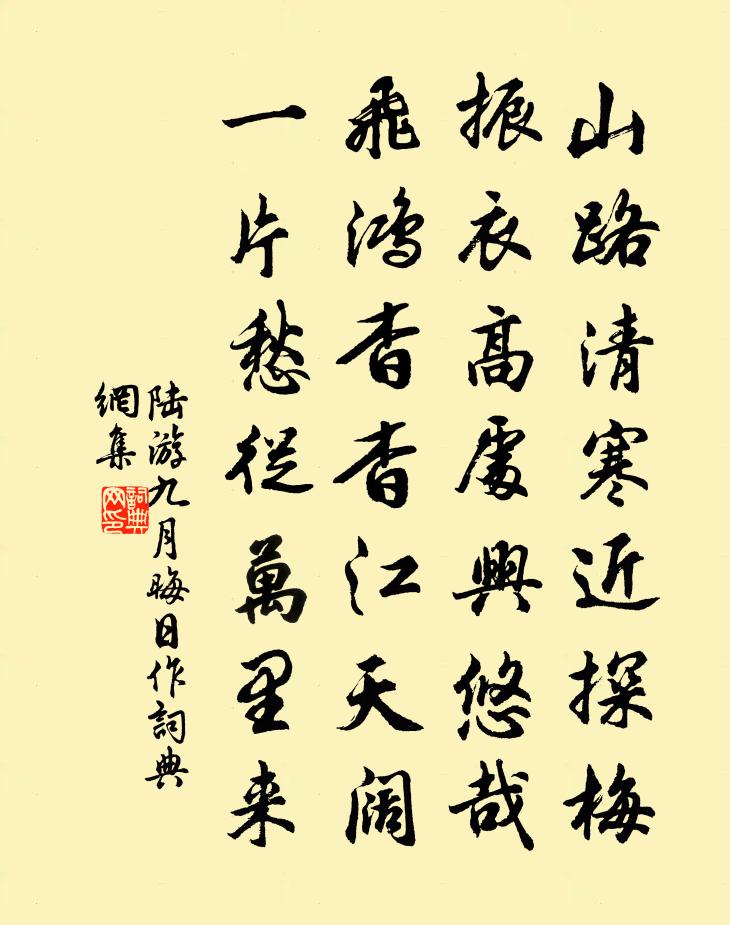 山路清寒近探梅
振衣高處興悠哉
飛鴻杳杳江天闊
一片愁從萬里来
陸游九月晦日作詞典
網集
詞典
网印